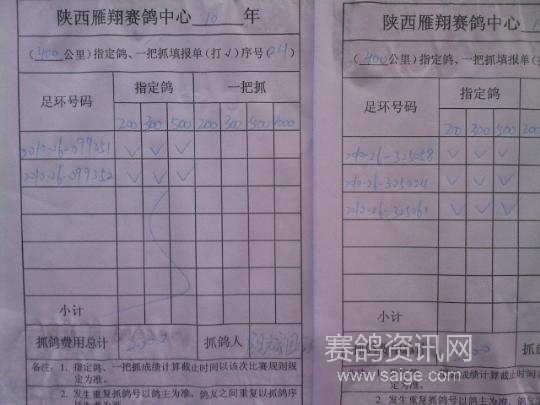 陕西雁翔赛鸽中心 10 年
(400公里)指定鸽、一把抓填报单(打√)序号(24)
足环号码 指定鸽 一把抓
200 300 500 200 300 500 1000
2010-26-099351 √ √ √
2010-26-099352 √ √ √
小计
抓鸽费用总计 2000 抓鸽人
备注:1. 指定鸽、一把抓成绩计算截止时间以该次比赛规则规
定为准。
2. 发生重复抓鸽号以鸽主为准。鸽友之间重复以抓鸽序
陕西雁翔赛鸽中心
(400公里)指定鸽、一把抓填报单(打
足环号码 指定鸽
200 300 500
2010-26-325058 √ √ √
2010-26-325024 √ √ √
2010-26-325061 √ √ √
小计
抓鸽费用总计
备注:1. 指定鸽、一把抓成绩计算截
定为准。
2. 发生重复抓鸽号以鸽主
赛鸽资讯网
www.saige.com